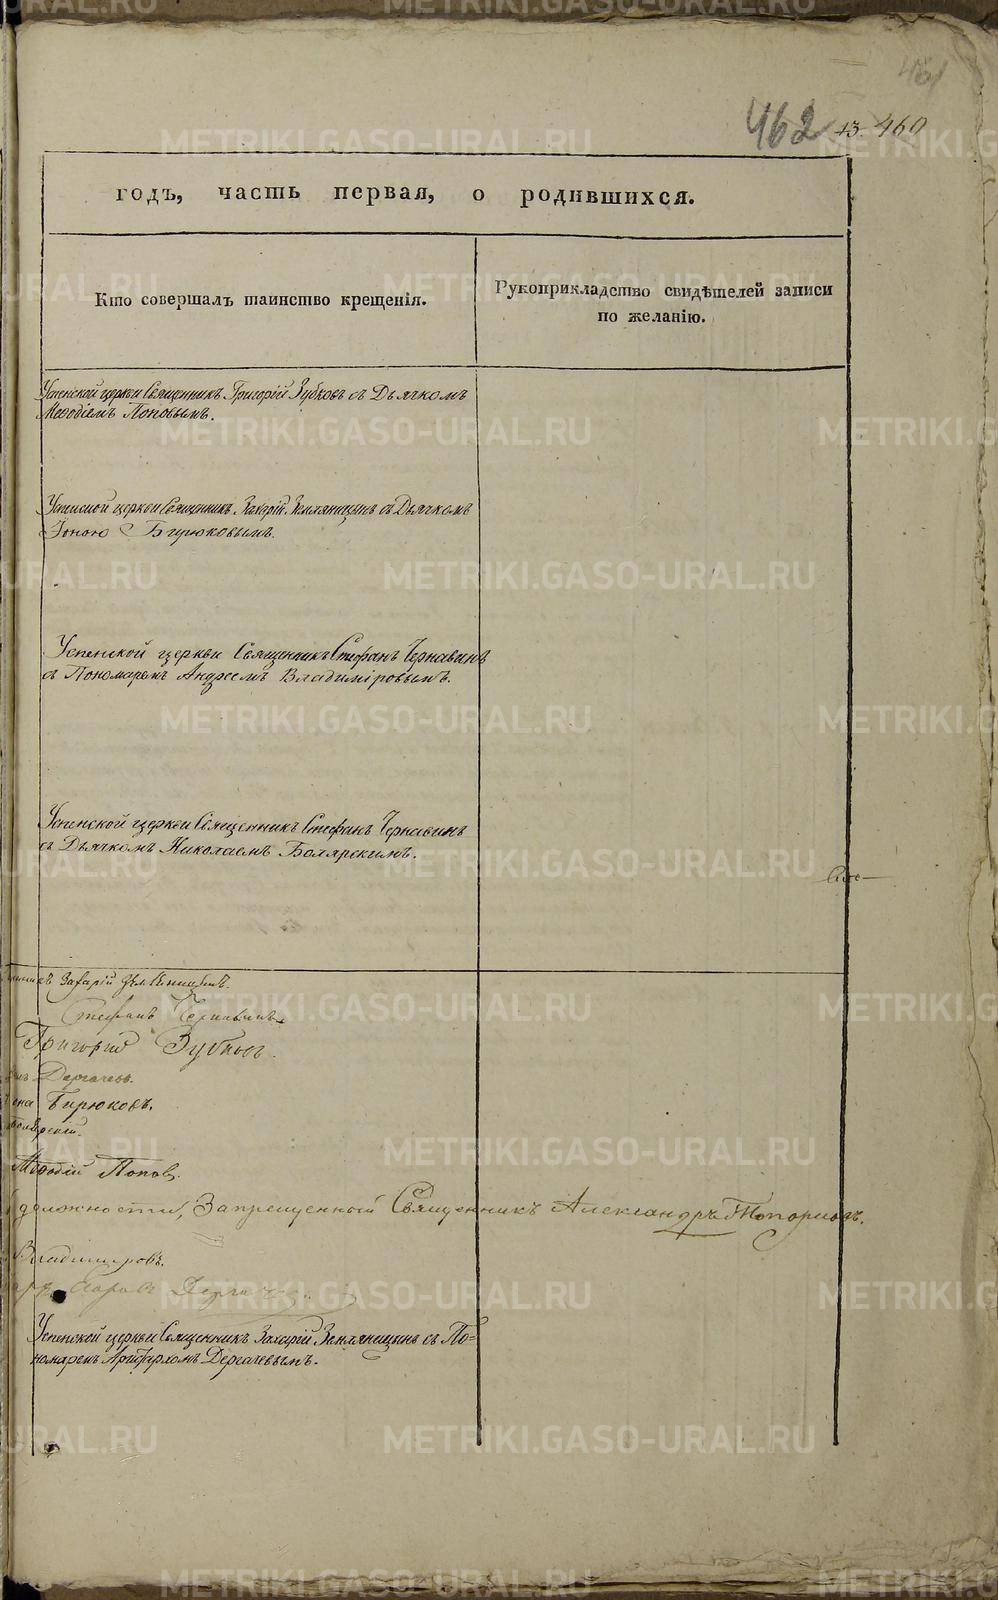 461
462 13. 460
годъ, часть первая, о родившихся.
Кто совершалъ таинство крещенія.
Рукоприкладство свидѣтелей записи
по желанію.
Успенской церкви Священникъ Григорій Зубковъ съ Дьячкомъ
Меѳодіемъ Поповымъ.
Успенской церкви Священникъ Захарій Земляницынъ съ Дьячкомъ
Іоною Бирюковымъ.
Успенской церкви Священникъ Стефанъ Чернавинъ
съ Пономаремъ Андреемъ Владиміровымъ.
Успенской церкви Священникъ Стефанъ Чернавинъ
съ Дьячкомъ Николаемъ Болярскимъ.
Захарій Земляницынъ.
Стефанъ Чернавинъ
Григорій Зубковъ.
Дергачевъ.
Бирюковъ.
Меѳодій Поповъ.
должности, Запрещенный Священникъ Александръ Топорковъ.
Владиміровъ.
Успенской церкви Священникъ Захарій Земляницынъ съ По-
номаремъ Дергачевымъ.
METRIKI.GASO-URAL.RU